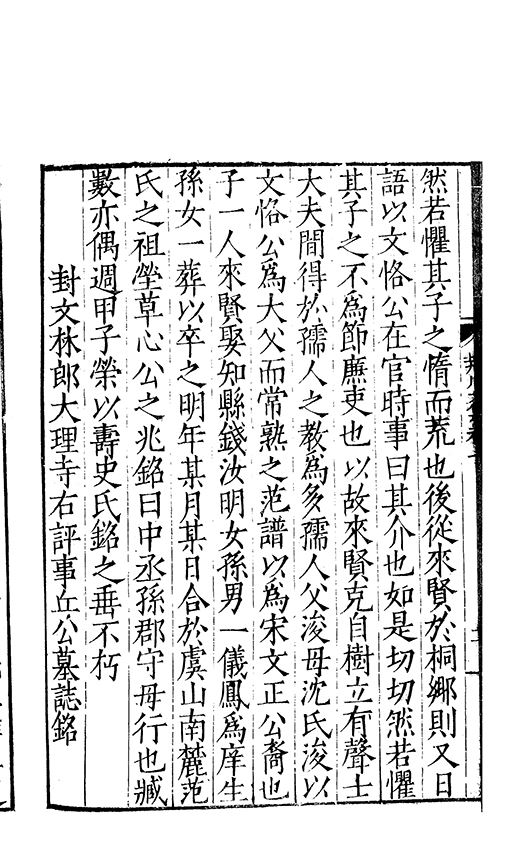 然若懼其子之惰而荒也後從來賢於桐鄉則又日
語以文恪公在官時事曰其介也如是切切然若懼
其子之不爲節廉吏也以故來賢克自樹立有聲士
大夫間得於孺人之教爲多孺人父浚母沈氏浚以
文恪公爲大父而常熟之范譜以爲宋文正公裔也
子一人來賢娶知縣錢汝明女孫男一儀鳳爲庠生
孫女一葬以卒之明年某月某日合於虞山南麓范
氏之祖塋草心公之兆銘曰中丞孫郡守母行也臧
數亦偶週甲子榮以壽史氏銘之垂不朽
封文林郎大理寺右評事丘公墓誌銘